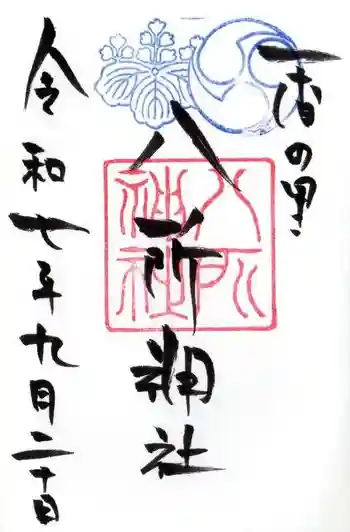 の里
八所神社
八所神社
令和七年九月二十日